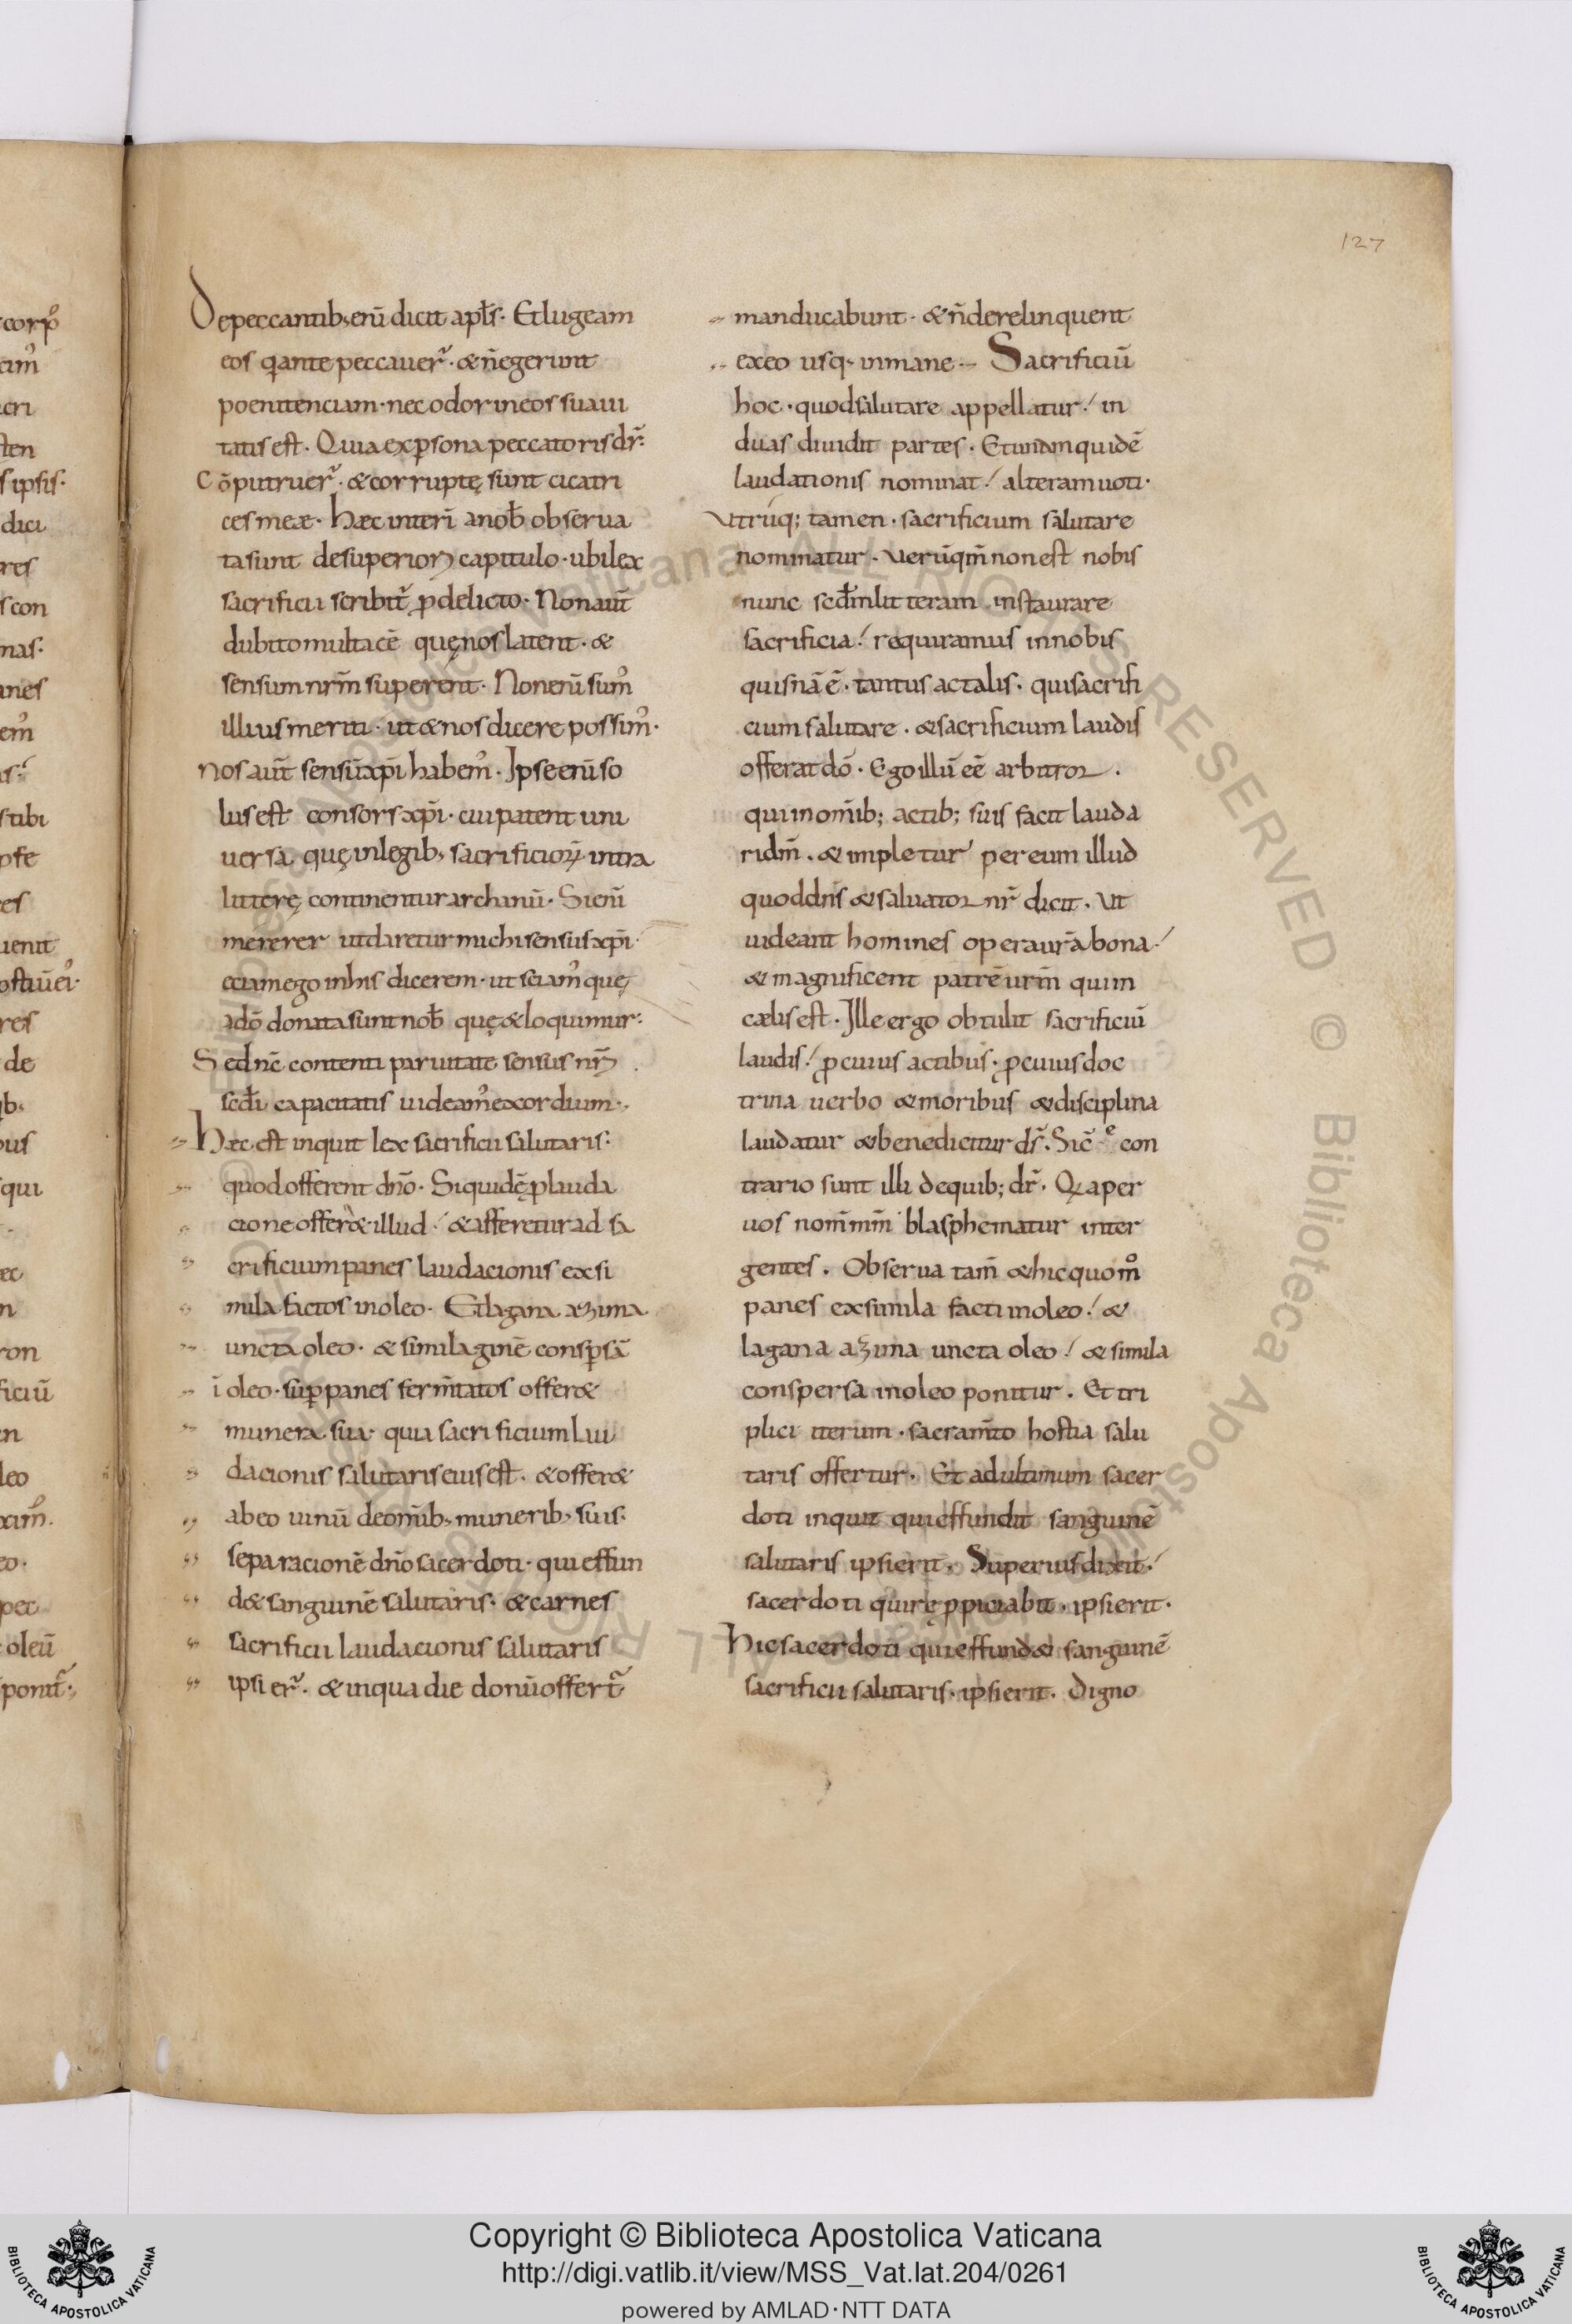 127
Depeccantib; eni̅ dicit apl̅s. Et lugeam
eos q̣ ante peccauer̅. & n̅ egerunt
poenitenciam. nec odor in eos suaui
tatis est. Quia ex p̲sona peccatoris dr̅:
Co̅putruer̅. & corruptę sunt cicatri
ces meæ. Hæc interi̅ a nob̅ obserua
ta sunt de superiorꝫ capitulo. ubi lex
sacrificii scribit̅ p̲ delicto. Non aut̅
dubito multa ee̅ quę nos latent. &
sensum nr̅m superent. Non eni̅ sum᾽
illius meriti. ut & nos dicere possim᾽.
nos aut̅ sensu̅ xp̅i habem᾽. Ipse eni̅ so
lus est consors xp̅i. cui patent uni
uersa quę in legib; sacrificioꝝ intra
litterę continentur archanu̅. Si eni̅
mererer ut daretur michi sensus xp̅i.
eciam ego in his dicerem. ut sciam᾽ quę
a do̅ donata sunt nob̅ quę & loquimur:
Sed nc̅ contenti paruitate sensus nr̅i
scd̅i capacitatis uideam᾽ exordium.
Hæc est inquit lex sacrificii salutaris.
quod offerent dn̅o. Si quide̅ p̲ lauda
cione offer& illud. & afferetur ad sa
crificium panes laudacionis ex si
mila factos in oleo. Et lagana azima
uncta oleo. & similagine̅ consp̲sa̅
i̅ oleo. sup̲ panes ferm̅tatos offer&
munera sua. quia sacrificium lau
dacionis salutaris eius est. & offer&
ab eo unu̅ de om̅ib; munerib; suis.
separacione̅ dn̅o sacerdoti. qui effun
d& sanguine̅ salutaris. & carnes
sacrificii laudacionis salutaris
ipsi er̅. & in qua die donu̅ offert̅
manducabunt. & n̅ derelinquent
ex eo usq; in mane. Sacrificiu̅
hoc. quod salutare appellatur! in
duas diuidit partes. Et unam quide̅
laudationis nominat! alteram uoti.
Vtru̅q; tamen. sacrificium salutare
nominatur. Veru̅ qm̅ non est nobis
nunc scd̅m litteram instaurare
sacrificia! requiramus in nobis
quisna̅ e̅. tantus ac talis. qui sacrifi
cium salutare. & sacrificium laudis
offerat do̅. Ego illu̅ ee̅ arbitror.
qui in om̅ib; actib; suis facit lauda
ri dm̅. & impletur per eum illud
quod dn̅s & saluator nr̅ dicit. Vt
uideant homines opera ur̅a bona!
& magnificent patre̅ ur̅m qui in
cælis est. Ille ergo obtulit sacrificiu̅
laudis! p̲ cuius actibus. p̲ cuius doc
trina uerbo & moribus & disciplina
laudatur & benedicitur ds̅. Sic̅ e con
trario sunt illi de quib; dr̅. Quia per
uos nom̅ mm̅ blasphematur inter
gentes. Obserua tam̅ & hic quom᾽
panes ex simila facti in oleo! &
lagana azima uncta oleo! & simila
conspersa in oleo ponitur. Et tri
plici iterum. sacram̅to hostia salu
taris offertur. Et ad ultimum sacer
doti inquit qui effundit sanguine̅
salutaris ipsi erit. Superius dixit!
sacerdoti qui rep̲piciabit. ipsi erit.
Hic sacerdoti qui effund& sanguine̅
sacrificii salutaris. ipsi erit. Digno
Copyright © Biblioteca Apostolica Vaticana
http://digi.vatlib.it/view/MSS_Vat.lat.204/0261
powered by AMLAD·NTT DATA
BIBLIOTECA APOSTOLICA VATICANA
BIBLIOTECA APOSTOLICA VATICANA